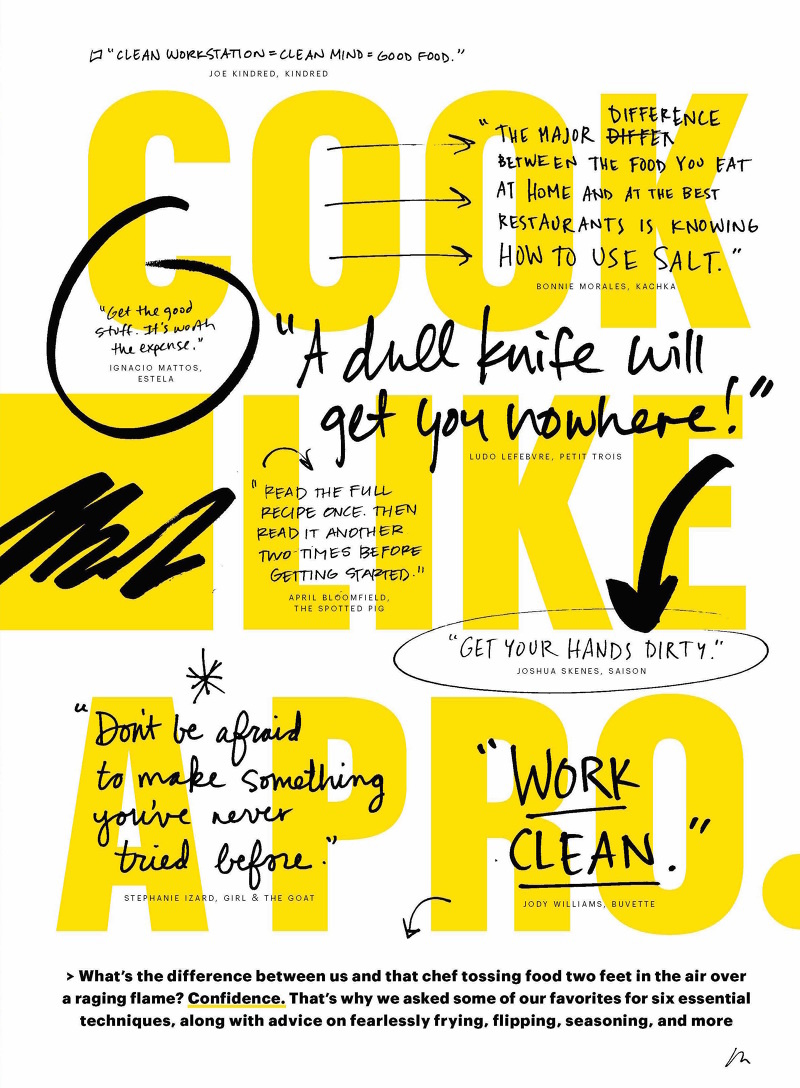 "CLEAN WORKSTATION = CLEAN MIND = GOOD FOOD."
JOE KINDRED, KINDRED
COOK
"THE MAJOR DIFFER DIFFERENCE
BETWEEN THE FOOD YOU EAT
AT HOME AND AT THE BEST
RESTAURANTS IS KNOWING
HOW TO USE SALT."
BONNIE MORALES, KACHKA
"Get the good
stuff. It's worth
the expense."
IGNACIO MATTOS,
ESTELA
"A dull knife will
get you nowhere!"
LUDO LEFEBVRE, PETIT TROIS
LIKE
"READ THE FULL
RECIPE ONCE. THEN
READ IT ANOTHER
TWO TIMES BEFORE
GETTING STARTED."
APRIL BLOOMFIELD,
THE SPOTTED PIG
"GET YOUR HANDS DIRTY."
JOSHUA SKENES, SAISON
A PRO.
"Don't be afraid
to make something
you've never
tried before."
STEPHANIE IZARD, GIRL & THE GOAT
"WORK
CLEAN."
JODY WILLIAMS, BUVETTE
> What's the difference between us and that chef tossing food two feet in the air over
a raging flame? Confidence. That's why we asked some of our favorites for six essential
techniques, along with advice on fearlessly frying, flipping, seasoning, and more